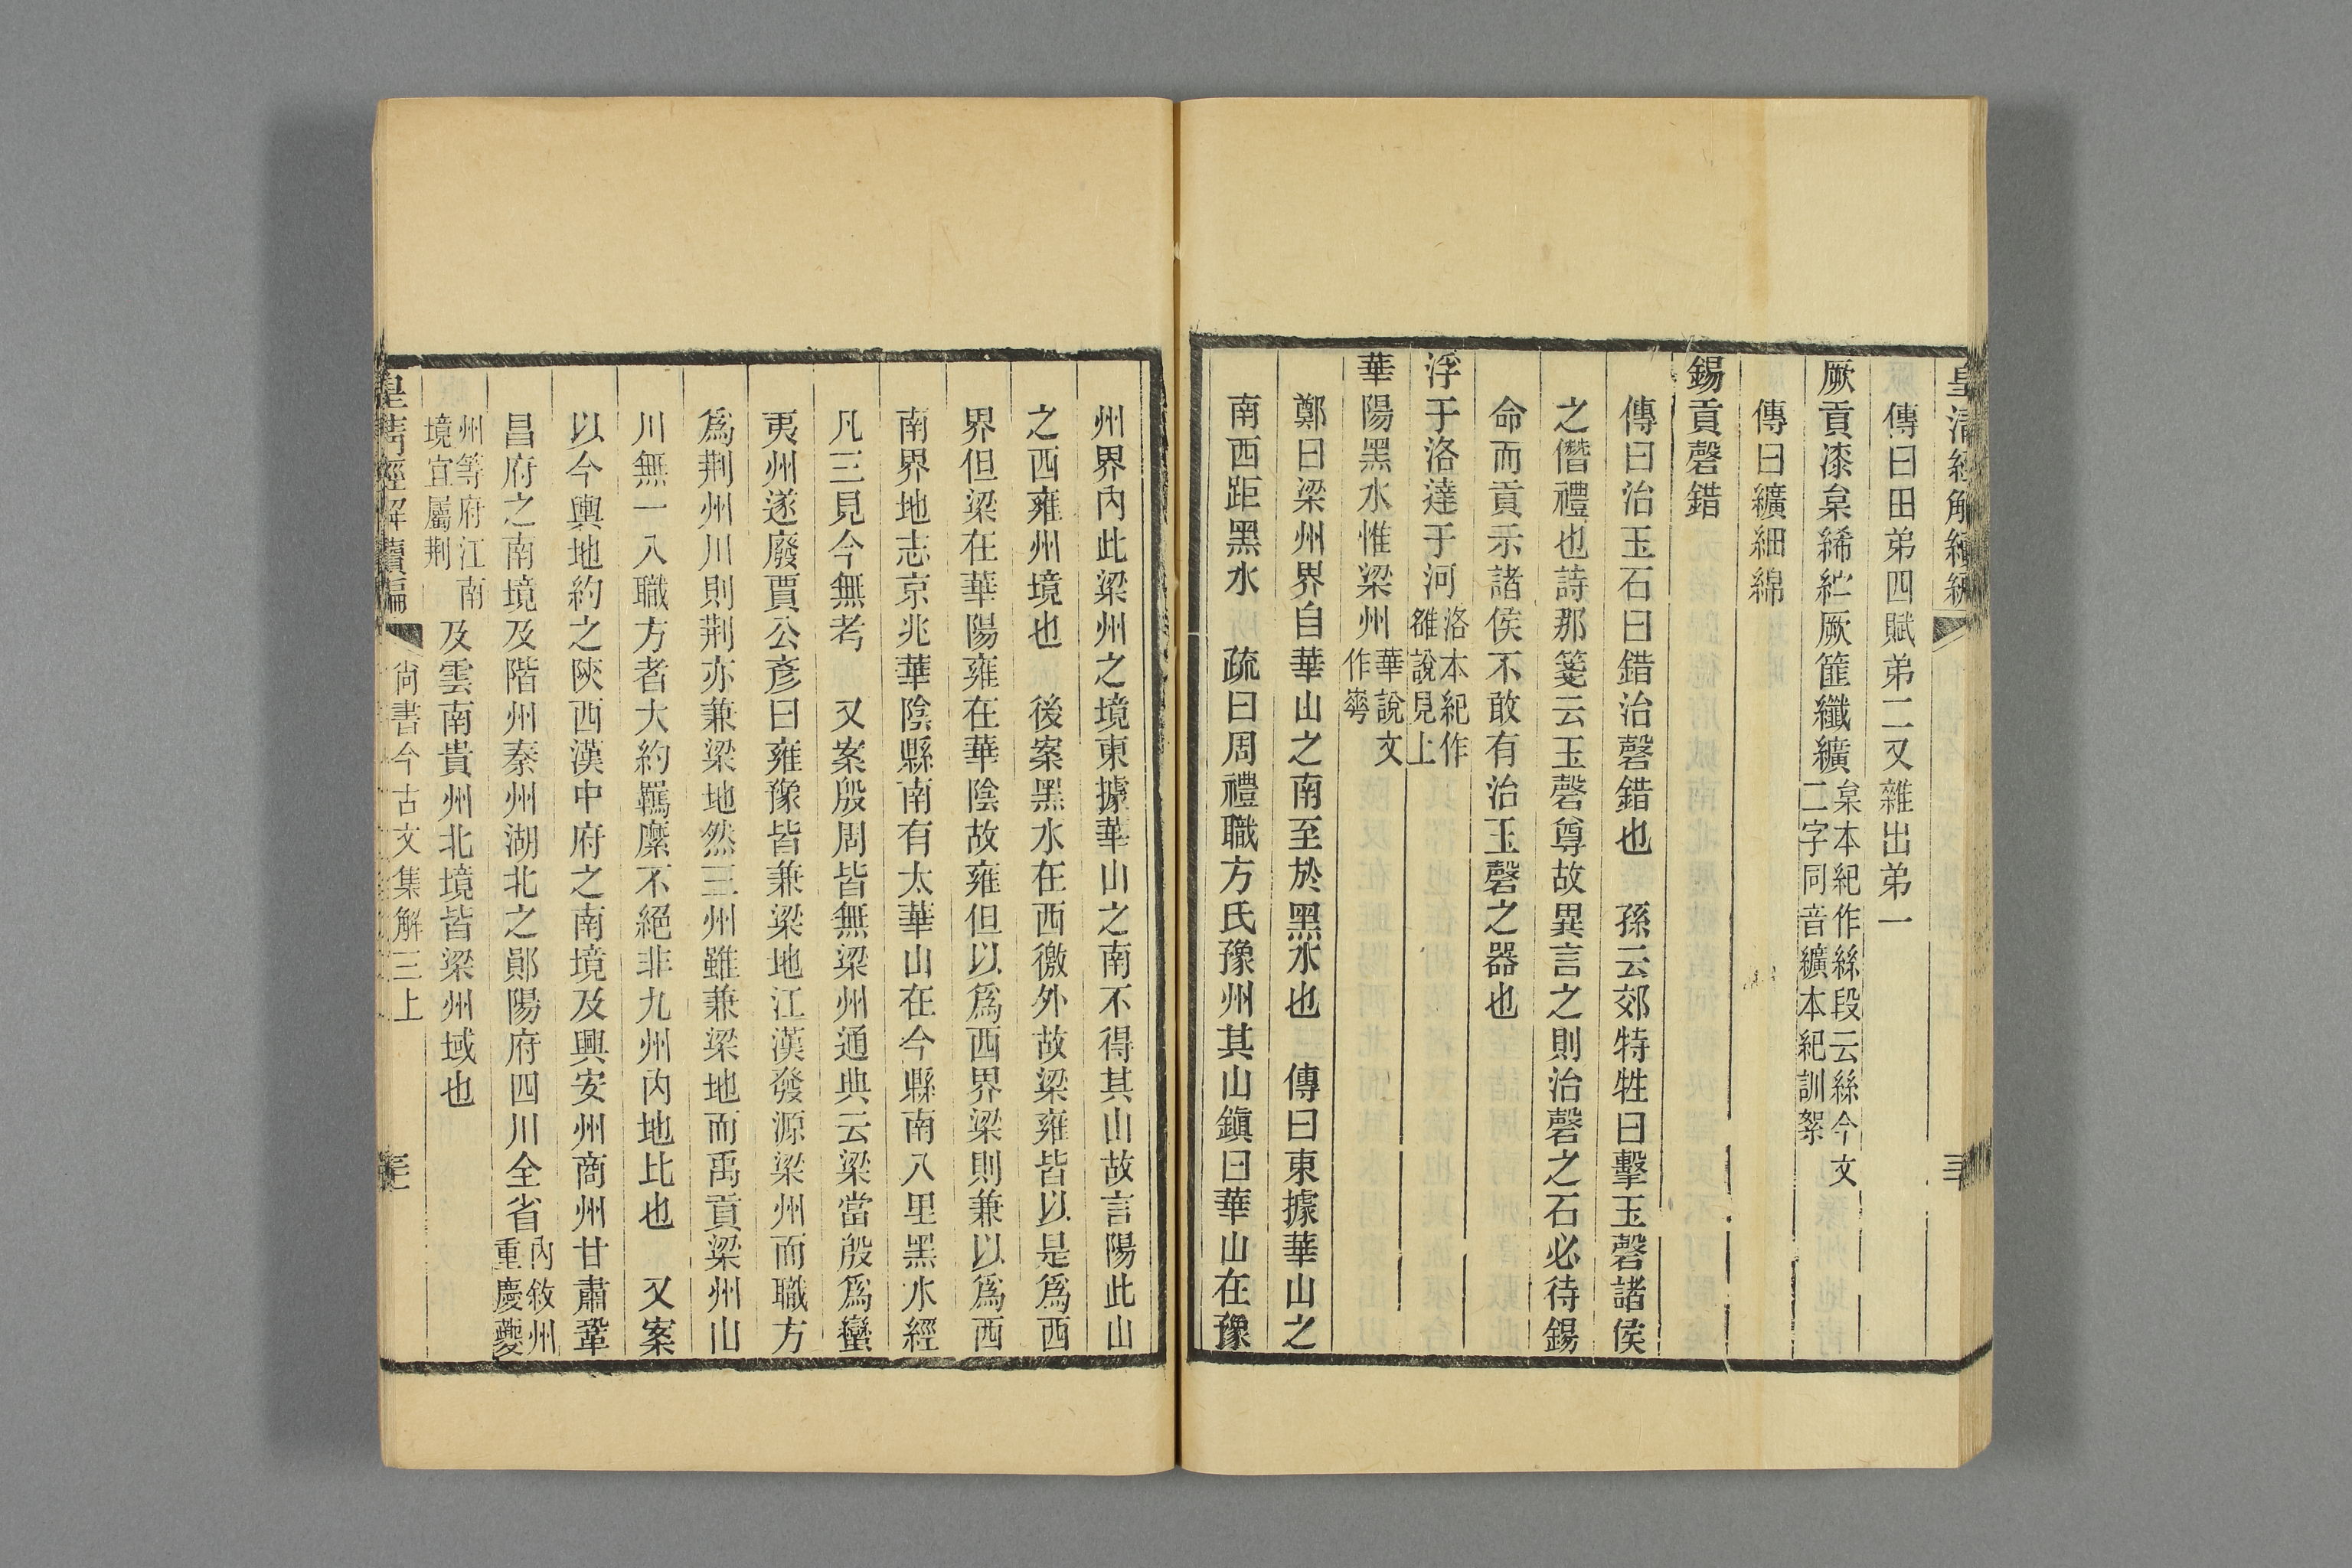 皇清經解續編
傳曰田弟四賦弟二又雜出弟一
厥貢漆枲絺紵厥篚纖纊枲本紀作絲段云絲今文二字同音纊本紀訓絮
傳曰纊細綿
錫貢磬錯
傳曰治玉石曰錯治磬錯也　孫云郊特牲曰擊玉磬諸侯
之僭禮也詩那箋云玉磬尊故異言之則治磬之石必待錫
命而貢示諸侯不敢有治玉磬之器也
浮于洛達于河洛本紀作雒說見上
華陽黑水惟梁州華說文作崋
鄭曰梁州界自華山之南至於黑水也　傳曰東據華山之
南西距黑水　疏曰周禮職方氏豫州其山鎮曰華山在豫
州界內此梁州之境東據華山之南不得其山故言陽此山
之西雍州境也　後案黑水在西徼外故梁雍皆以是爲西
界但梁在華陽雍在華陰故雍但以爲西界梁則兼以爲西
南界地志京兆華陰縣南有太華山在今縣南八里黑水經
凡三見今無考　又案殷周皆無梁州通典云梁當殷爲蠻
夷州遂廢賈公彥曰雍豫皆兼梁地江漢發源梁州而職方
爲荆州川則荆亦兼梁地然三州雖兼梁地而禹貢梁州山
川無一入職方者大約羈縻不絕非九州內地比也　又案
以今輿地約之陝西漢中府之南境及興安州商州甘肅鞏
昌府之南境及階州秦州湖北之鄖陽府四川全省內敘州重慶夔
州等府江南境宜屬荆及雲南貴州北境皆梁州域也
皇清經解續編　尚書今古文集解三上